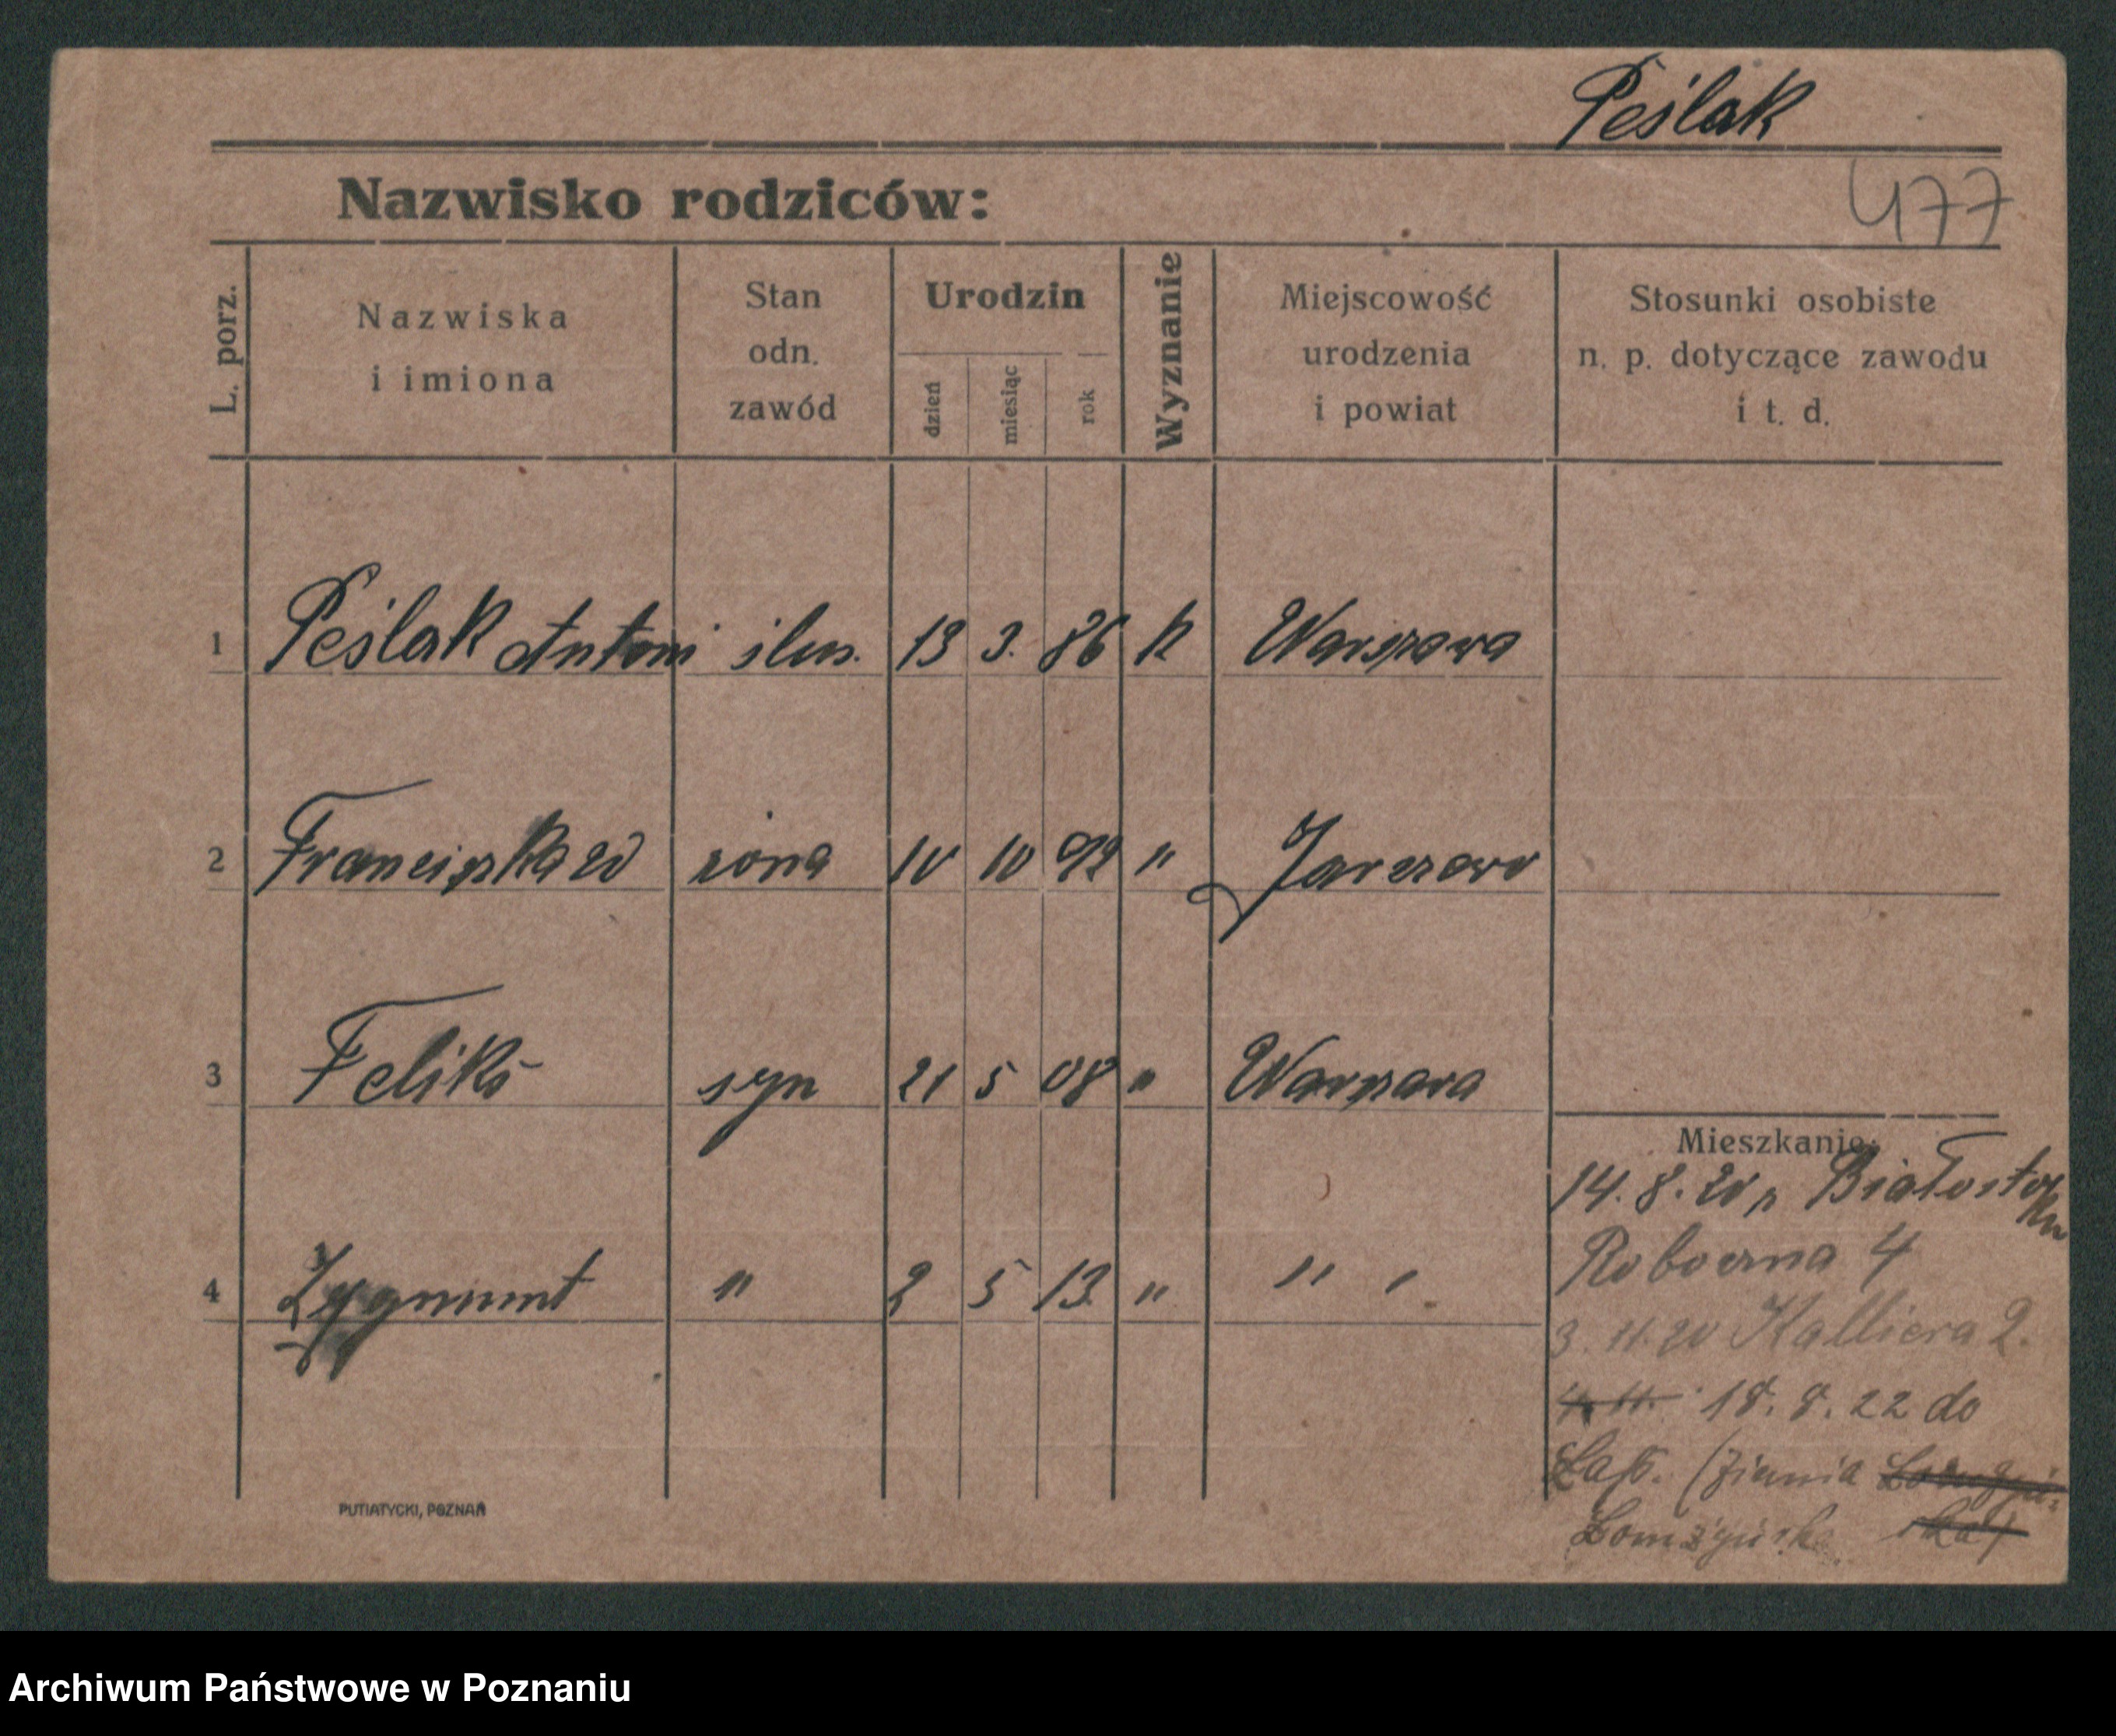 Peślak
Nazwisko rodziców:
477
L. porz.
Nazwiska
i imiona
Stan
odn.
zawód
Urodzin
dzień
miesiąc
rok
Wyznanie
Miejscowość
urodzenia
i powiat
Stosunki osobiste
n. p. dotyczące zawodu
i t. d.
1 Peślak Antoni ślus. 13 3. 86 k Warszawa
2 Franciszka żona 10 10 92 "
3 Feliks syn 21 5 08 " Warszawa
4 Zygmunt " 2 5 13 " " "
Mieszkanie:
14. 8. 20 z Białostoku
Roboczna 4
3. 11. 20 Kalliera 2.
18. 8. 22 do
(ziemia
PUTIATYCKI, POZNAŃ
Archiwum Państwowe w Poznaniu